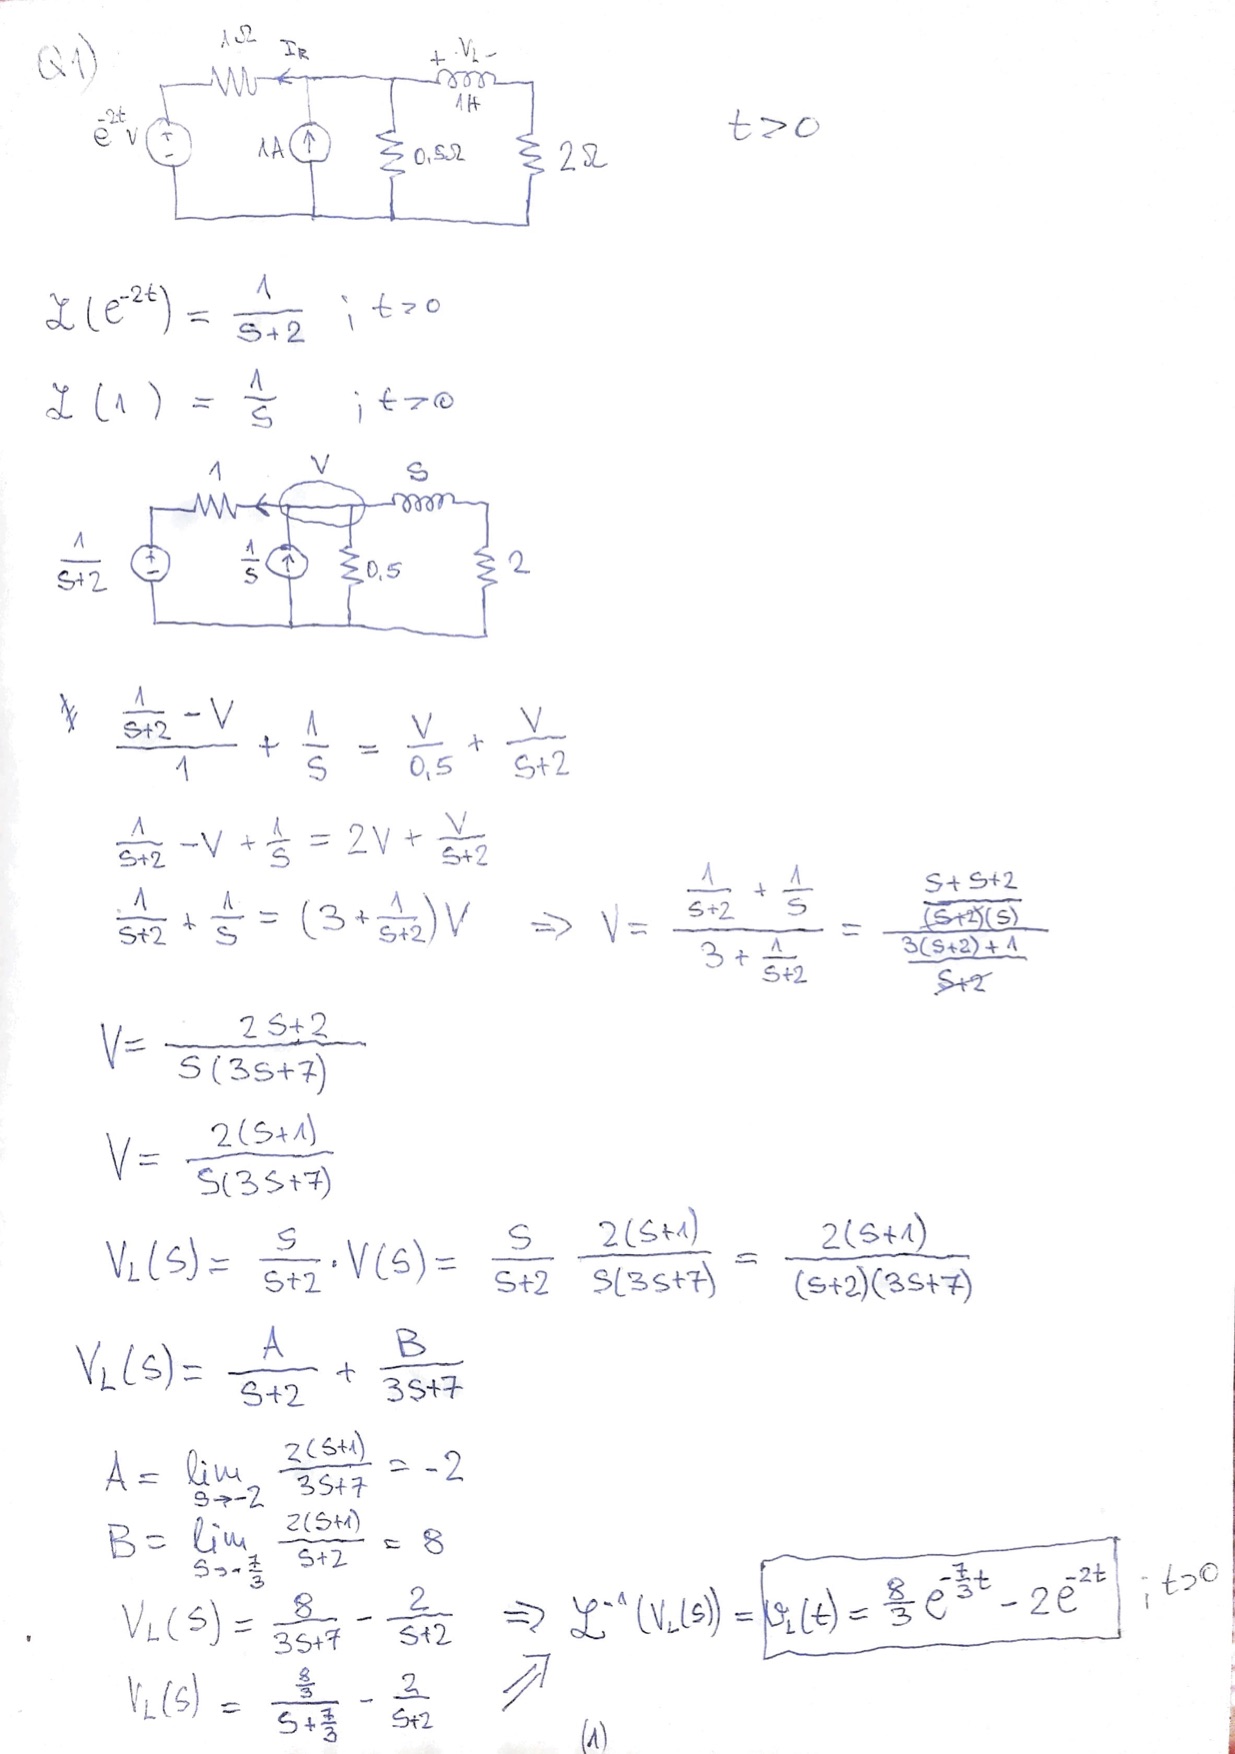 Q1)
1Ω I_R + V_L -
1H
e^{-2t} V + - 1A 0,5Ω 2Ω t>0
ℒ(e^{-2t}) = \frac{1}{s+2} ; t>0
ℒ(1) = \frac{1}{s} ; t>0
1 V s
\frac{1}{s+2} + - \frac{1}{s} 0,5 2
* \frac{\frac{1}{s+2} - V}{1} + \frac{1}{s} = \frac{V}{0,5} + \frac{V}{s+2}
\frac{1}{s+2} - V + \frac{1}{s} = 2V + \frac{V}{s+2}
\frac{1}{s+2} + \frac{1}{s} = (3 + \frac{1}{s+2})V ⇒ V = \frac{\frac{1}{s+2} + \frac{1}{s}}{3 + \frac{1}{s+2}} = \frac{\frac{s+s+2}{(s+2)(s)}}{\frac{3(s+2)+1}{s+2}}
V = \frac{2s+2}{s(3s+7)}
V = \frac{2(s+1)}{s(3s+7)}
V_L(s) = \frac{s}{s+2} · V(s) = \frac{s}{s+2} \frac{2(s+1)}{s(3s+7)} = \frac{2(s+1)}{(s+2)(3s+7)}
V_L(s) = \frac{A}{s+2} + \frac{B}{3s+7}
A = lim_{s→-2} \frac{2(s+1)}{3s+7} = -2
B = lim_{s→-\frac{7}{3}} \frac{2(s+1)}{s+2} = 8
V_L(s) = \frac{8}{3s+7} - \frac{2}{s+2} ⇒ ℒ^{-1}(V_L(s)) = v_L(t) = \frac{8}{3} e^{-\frac{7}{3}t} - 2e^{-2t} ; t>0
V_L(s) = \frac{\frac{8}{3}}{s+\frac{7}{3}} - \frac{2}{s+2} ⇒
(1)